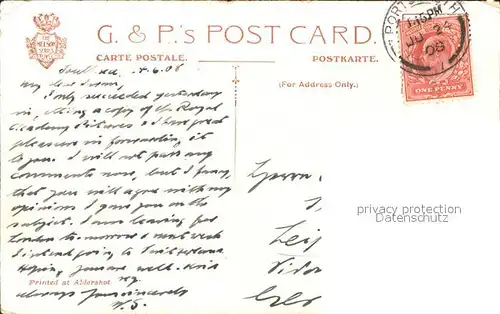 G. & P.'s POST CARD.
CARTE POSTALE. POSTKARTE.
THE NELSON SERIES
(For Address Only.)
1.15 PM
JU 24
08
ONE PENNY
Southsea 24.6.08
My dear
I only succeeded yesterday
in getting a copy of the Royal
Academy Pictures & have great
pleasure in forwarding it
to you. I will not pass any
comments now, but I fancy
that you will agree with my
opinions I gave you on the
subject. I am leaving for
London to-morrow & next week
I intend going to Switzerland
Hoping you are well. Kind
always yours sincerely
Herrn
Leip
privacy protection
Datenschutz
Printed at Aldershot